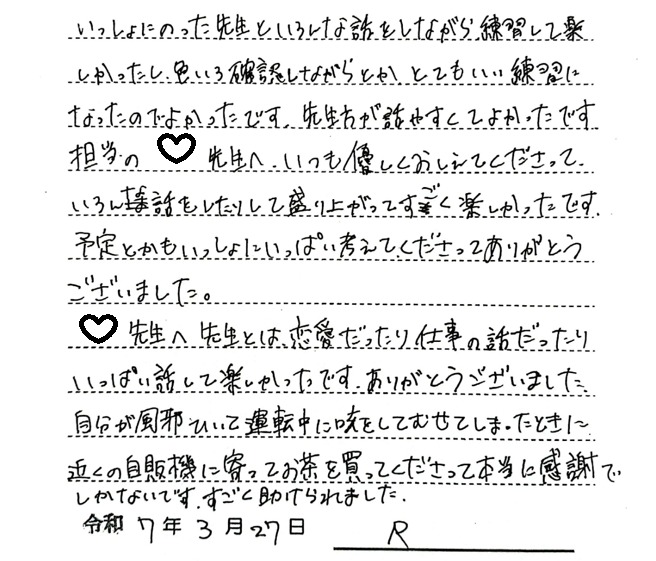 いっしょにのった先生といろんな話をしながら練習して楽
しかったし、色いろ確認しながらとか、とてもいい練習に
なったのでよかったです。先生方が話やすくてよかったです
担当の ♡ 先生へ、いつも優しくおしえてくださって、
いろんな話をしたりして盛り上がってすごく楽しかったです。
予定とかもいっしょにいっぱい考えてくださってありがとう
ございました。
♡ 先生へ 先生とは、恋愛だったり仕事の話だったり
いっぱい話して楽しかったです。ありがとうございました。
自分が風邪ひいて運転中に咳をしてむせてしまったときに
近くの自販機に寄ってお茶を買ってくださって本当に感謝で
しかないです。すごく助けられました。
令和 7年 3月27日 R